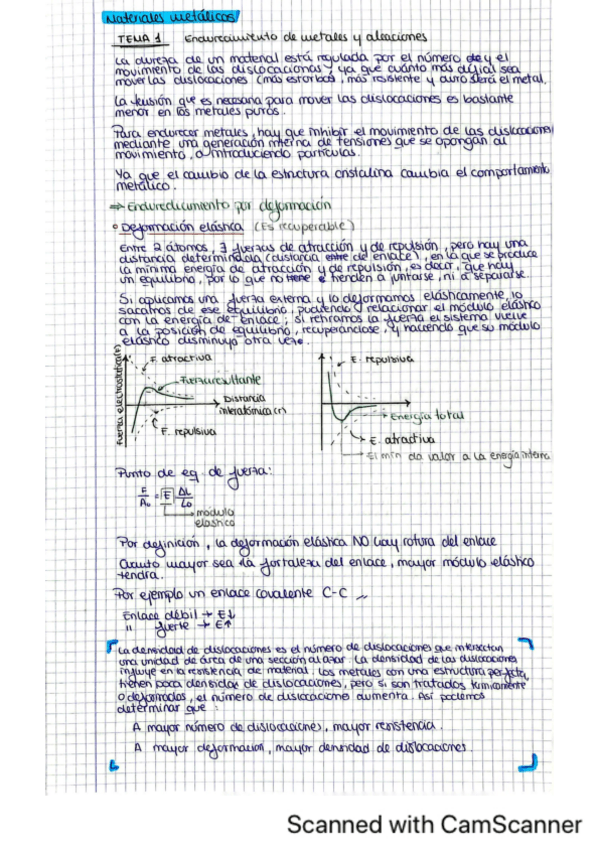 Materiales metálicos
TEMA 1 Endurecimiento de metales y aleaciones
La dureza de un material está regulada por el número de y el
movimiento de las dislocaciones, ya que cuánto más difícil sea
mover las dislocaciones (más estorbos), más resistente y duro será el metal.
La tensión que es necesaria para mover las dislocaciones es bastante
menor en los metales puros.
Para endurecer metales, hay que inhibir el movimiento de las dislocaciones
mediante una generación interna de tensiones que se opongan al
movimiento, o introduciendo partículas.
Ya que el cambio de la estructura cristalina cambia el comportamiento
metálico.
⇒ Endurecimiento por deformación
• Deformación elástica (Es recuperable)
Entre 2 átomos, ∃ fuerzas de atracción y de repulsión, pero hay una
distancia determinada (distancia entre de enlace), en la que se produce
la mínima energía de atracción y de repulsión, es decir, que hay
un equilibrio, por lo que no tiene tienden a juntarse, ni a separarse
Si aplicamos una fuerza externa y lo deformamos elásticamente, lo
sacamos de ese equilibrio, pudiendo relacionar el módulo elástico
con la energía de enlace; si retiramos la fuerza el sistema vuelve
a la posición de equilibrio, recuperándose, y haciendo que su módulo
elástico disminuya otra vez.
Fuerza electrostática(F)
F. atractiva
Fuerza resultante
Distancia
interatómica (r)
F. repulsiva
E. repulsiva
Energía total
E. atractiva
El mín da valor a la energía interna
Punto de eq. de fuerza:
F/A₀ = E ΔL/L₀
módulo
elástico
Por definición, la deformación elástica NO hay rotura del enlace
Cuanto mayor sea la fortaleza del enlace, mayor módulo elástico
tendrá.
Por ejemplo un enlace covalente C-C
Enlace débil → E↓
" fuerte → E↑
La densidad de dislocaciones es el número de dislocaciones que intersectan
una unidad de área de una sección al azar. La densidad de las dislocaciones
influye en la resistencia de material. Los metales con una estructura perfecta,
tienen poca densidad de dislocaciones, pero si son tratados térmicamente
o deformados, el número de dislocaciones aumenta. Así podemos
determinar que:
A mayor número de dislocaciones, mayor resistencia.
A mayor deformación, mayor densidad de dislocaciones.
Scanned with CamScanner